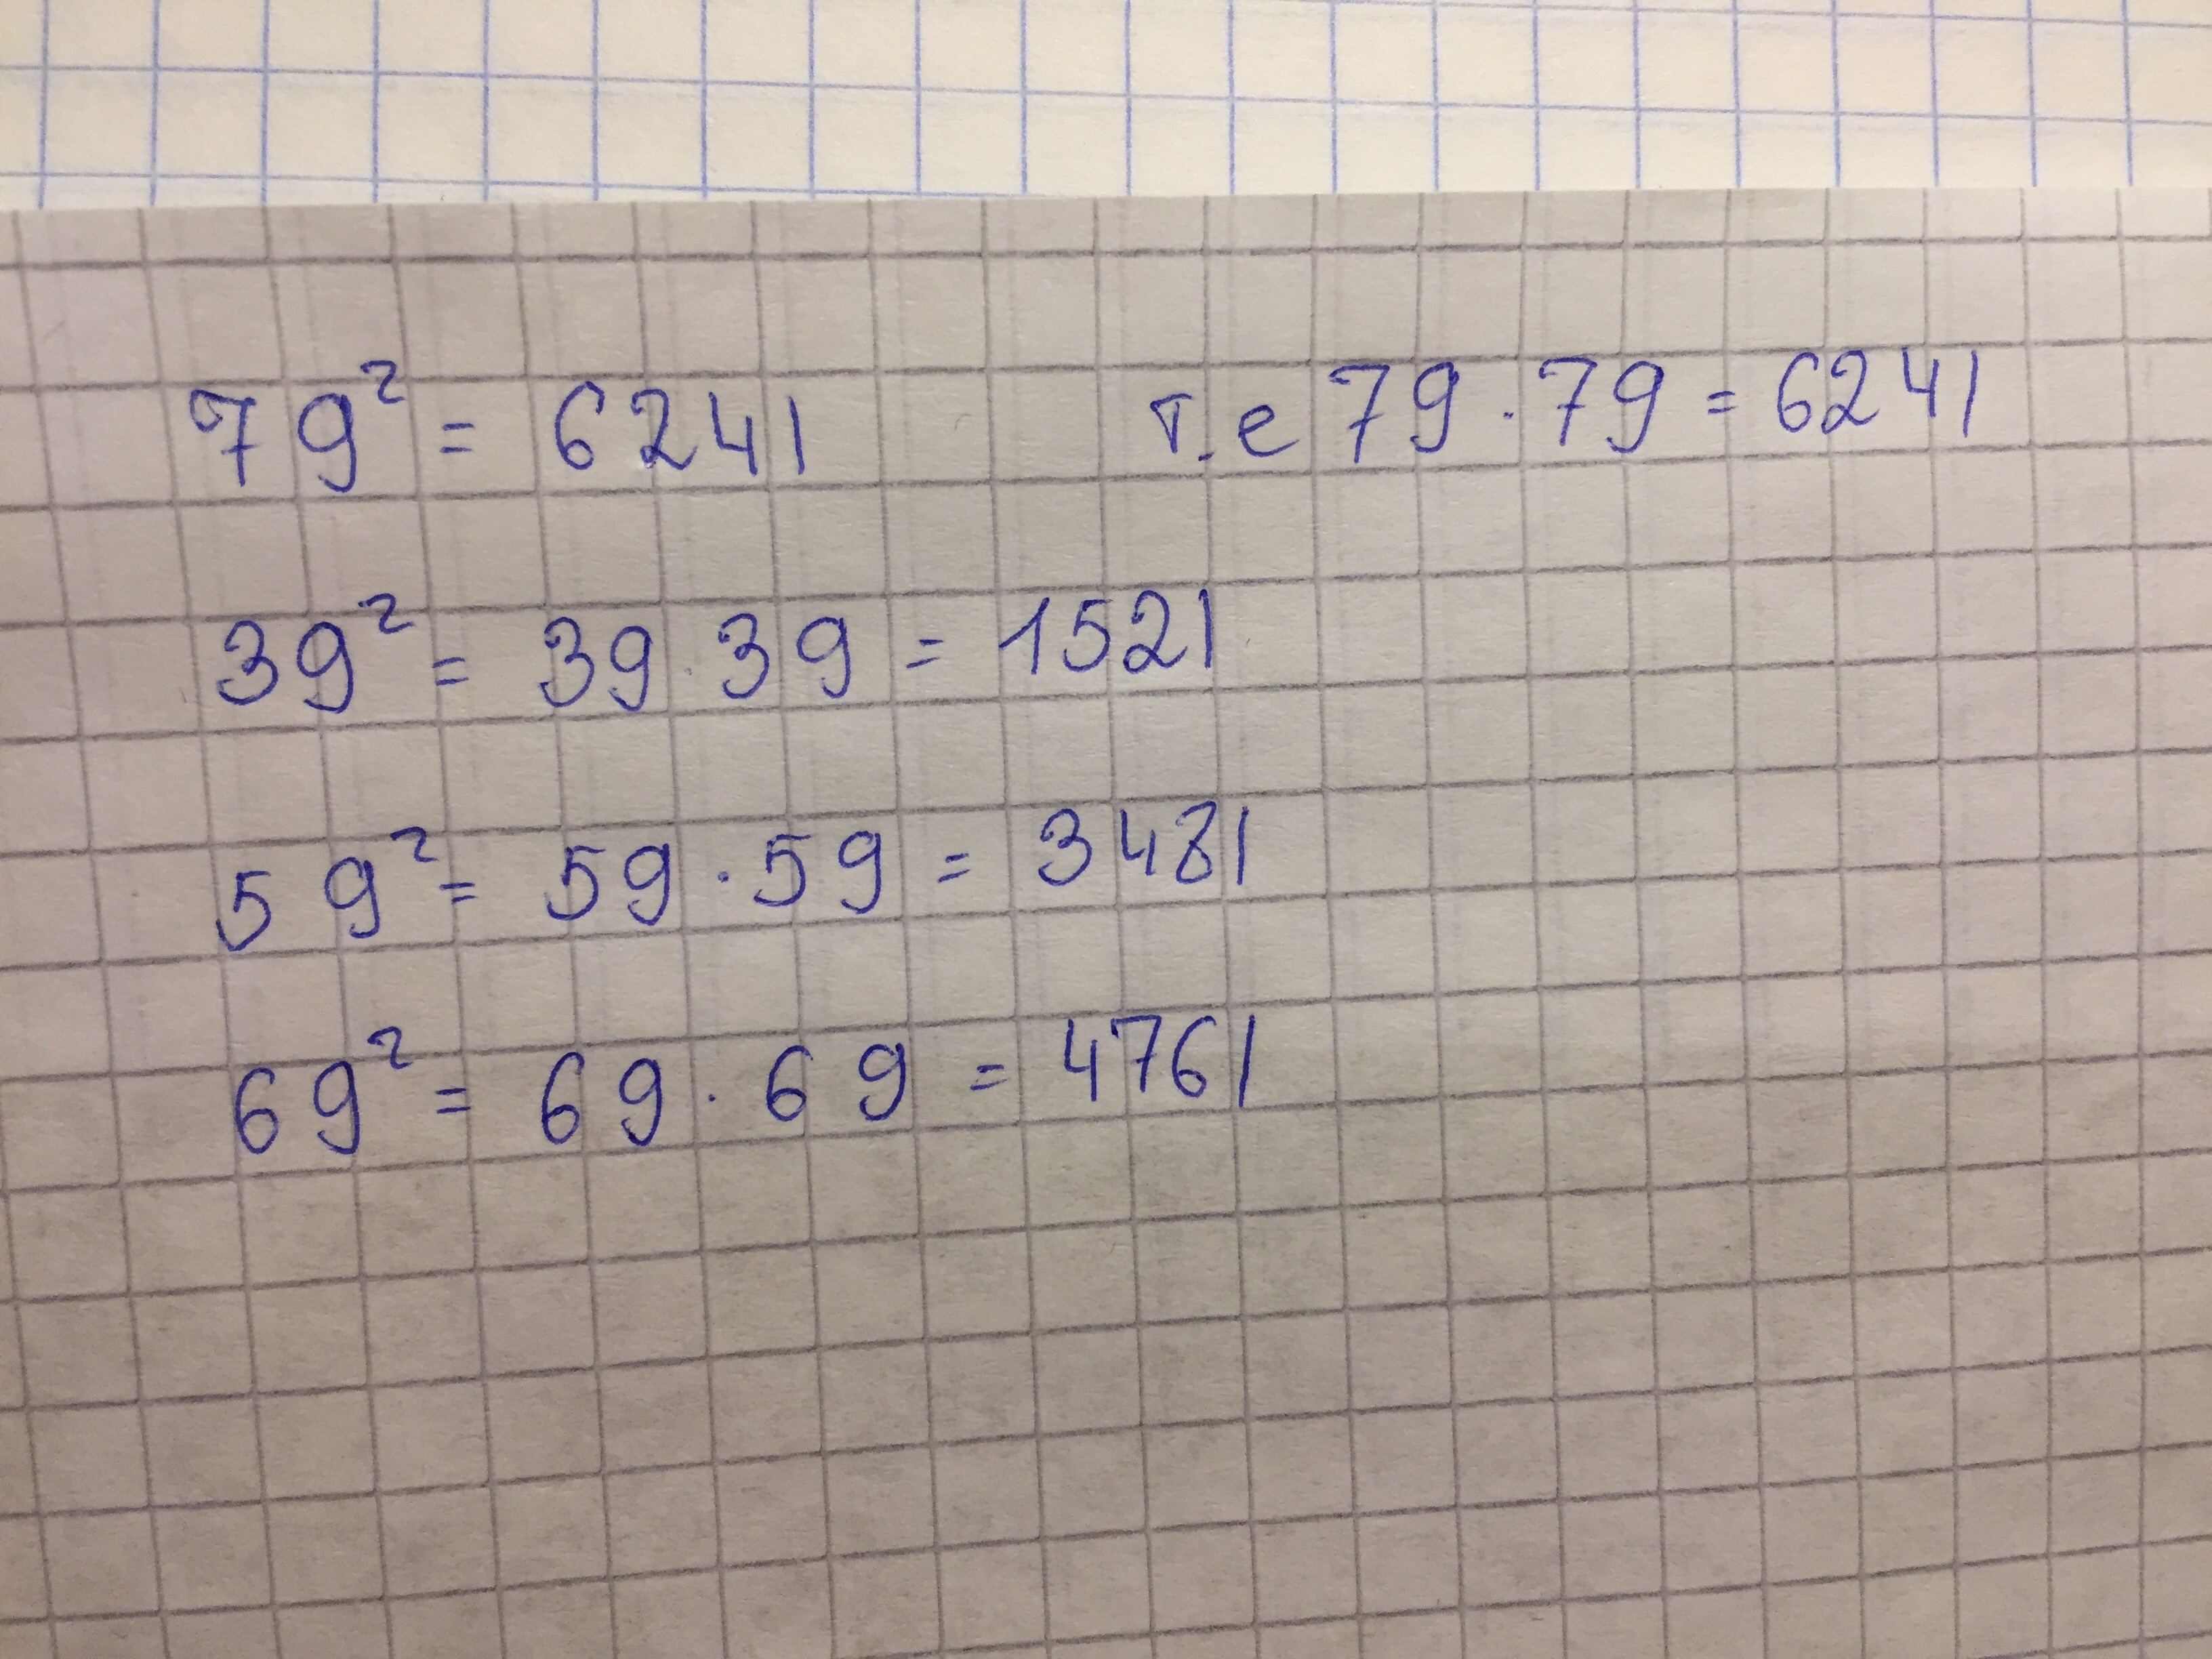 79² = 6241 т.е 79 · 79 = 6241
39² = 39 · 39 = 1521
59² = 59 · 59 = 3481
69² = 69 · 69 = 4761